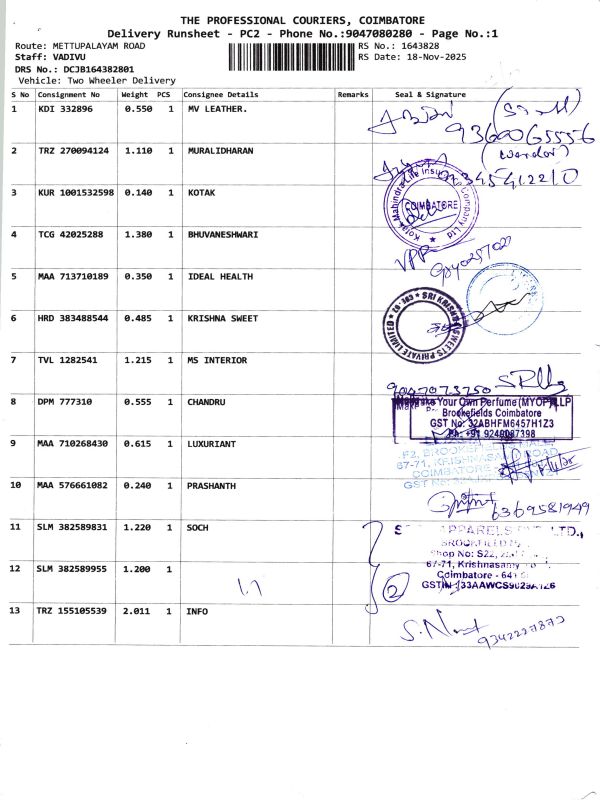 THE PROFESSIONAL COURIERS, COIMBATORE
Delivery Runsheet - PC2 - Phone No.:9047080280 - Page No.:1
Route: METTUPALAYAM ROAD
RS No.: 1643828
Staff: VADIVU
RS Date: 18-Nov-2025
DRS No.: DCJB164382801
Vehicle: Two Wheeler Delivery
S No Consignment No Weight PCS Consignee Details Remarks Seal & Signature
1 KDI 332896 0.550 1 MV LEATHER.
9360065556
2 TRZ 270094124 1.110 1 MURALIDHARAN
3 KUR 1001532598 0.140 1 KOTAK
Kotak Mahindra Life Insurance Company Ltd
COIMBATORE
4 TCG 42025288 1.380 1 BHUVANESHWARI
5 MAA 713710189 0.350 1 IDEAL HEALTH
6 HRD 383488544 0.485 1 KRISHNA SWEET
SRI KRISHNA SWEETS PRIVATE LIMITED
7 TVL 1282541 1.215 1 MS INTERIOR
9047073750
8 DPM 777310 0.555 1 CHANDRU
Make Your Own Perfume (MYOP) LLP
Brookefields Coimbatore
GST No: 32ABHFM6457H1Z3
9 MAA 710268430 0.615 1 LUXURIANT
F2, BROOKEFIELDS MALL,
67-71, KRISHNASAMY ROAD
COIMBATORE
GST No
10 MAA 576661082 0.240 1 PRASHANTH
6369581949
11 SLM 382589831 1.220 1 SOCH
APPARELS PVT. LTD.,
Shop No: S22,
67-71, Krishnasamy
Coimbatore - 641
12 SLM 382589955 1.200 1
1.7
2
13 TRZ 155105539 2.011 1 INFO